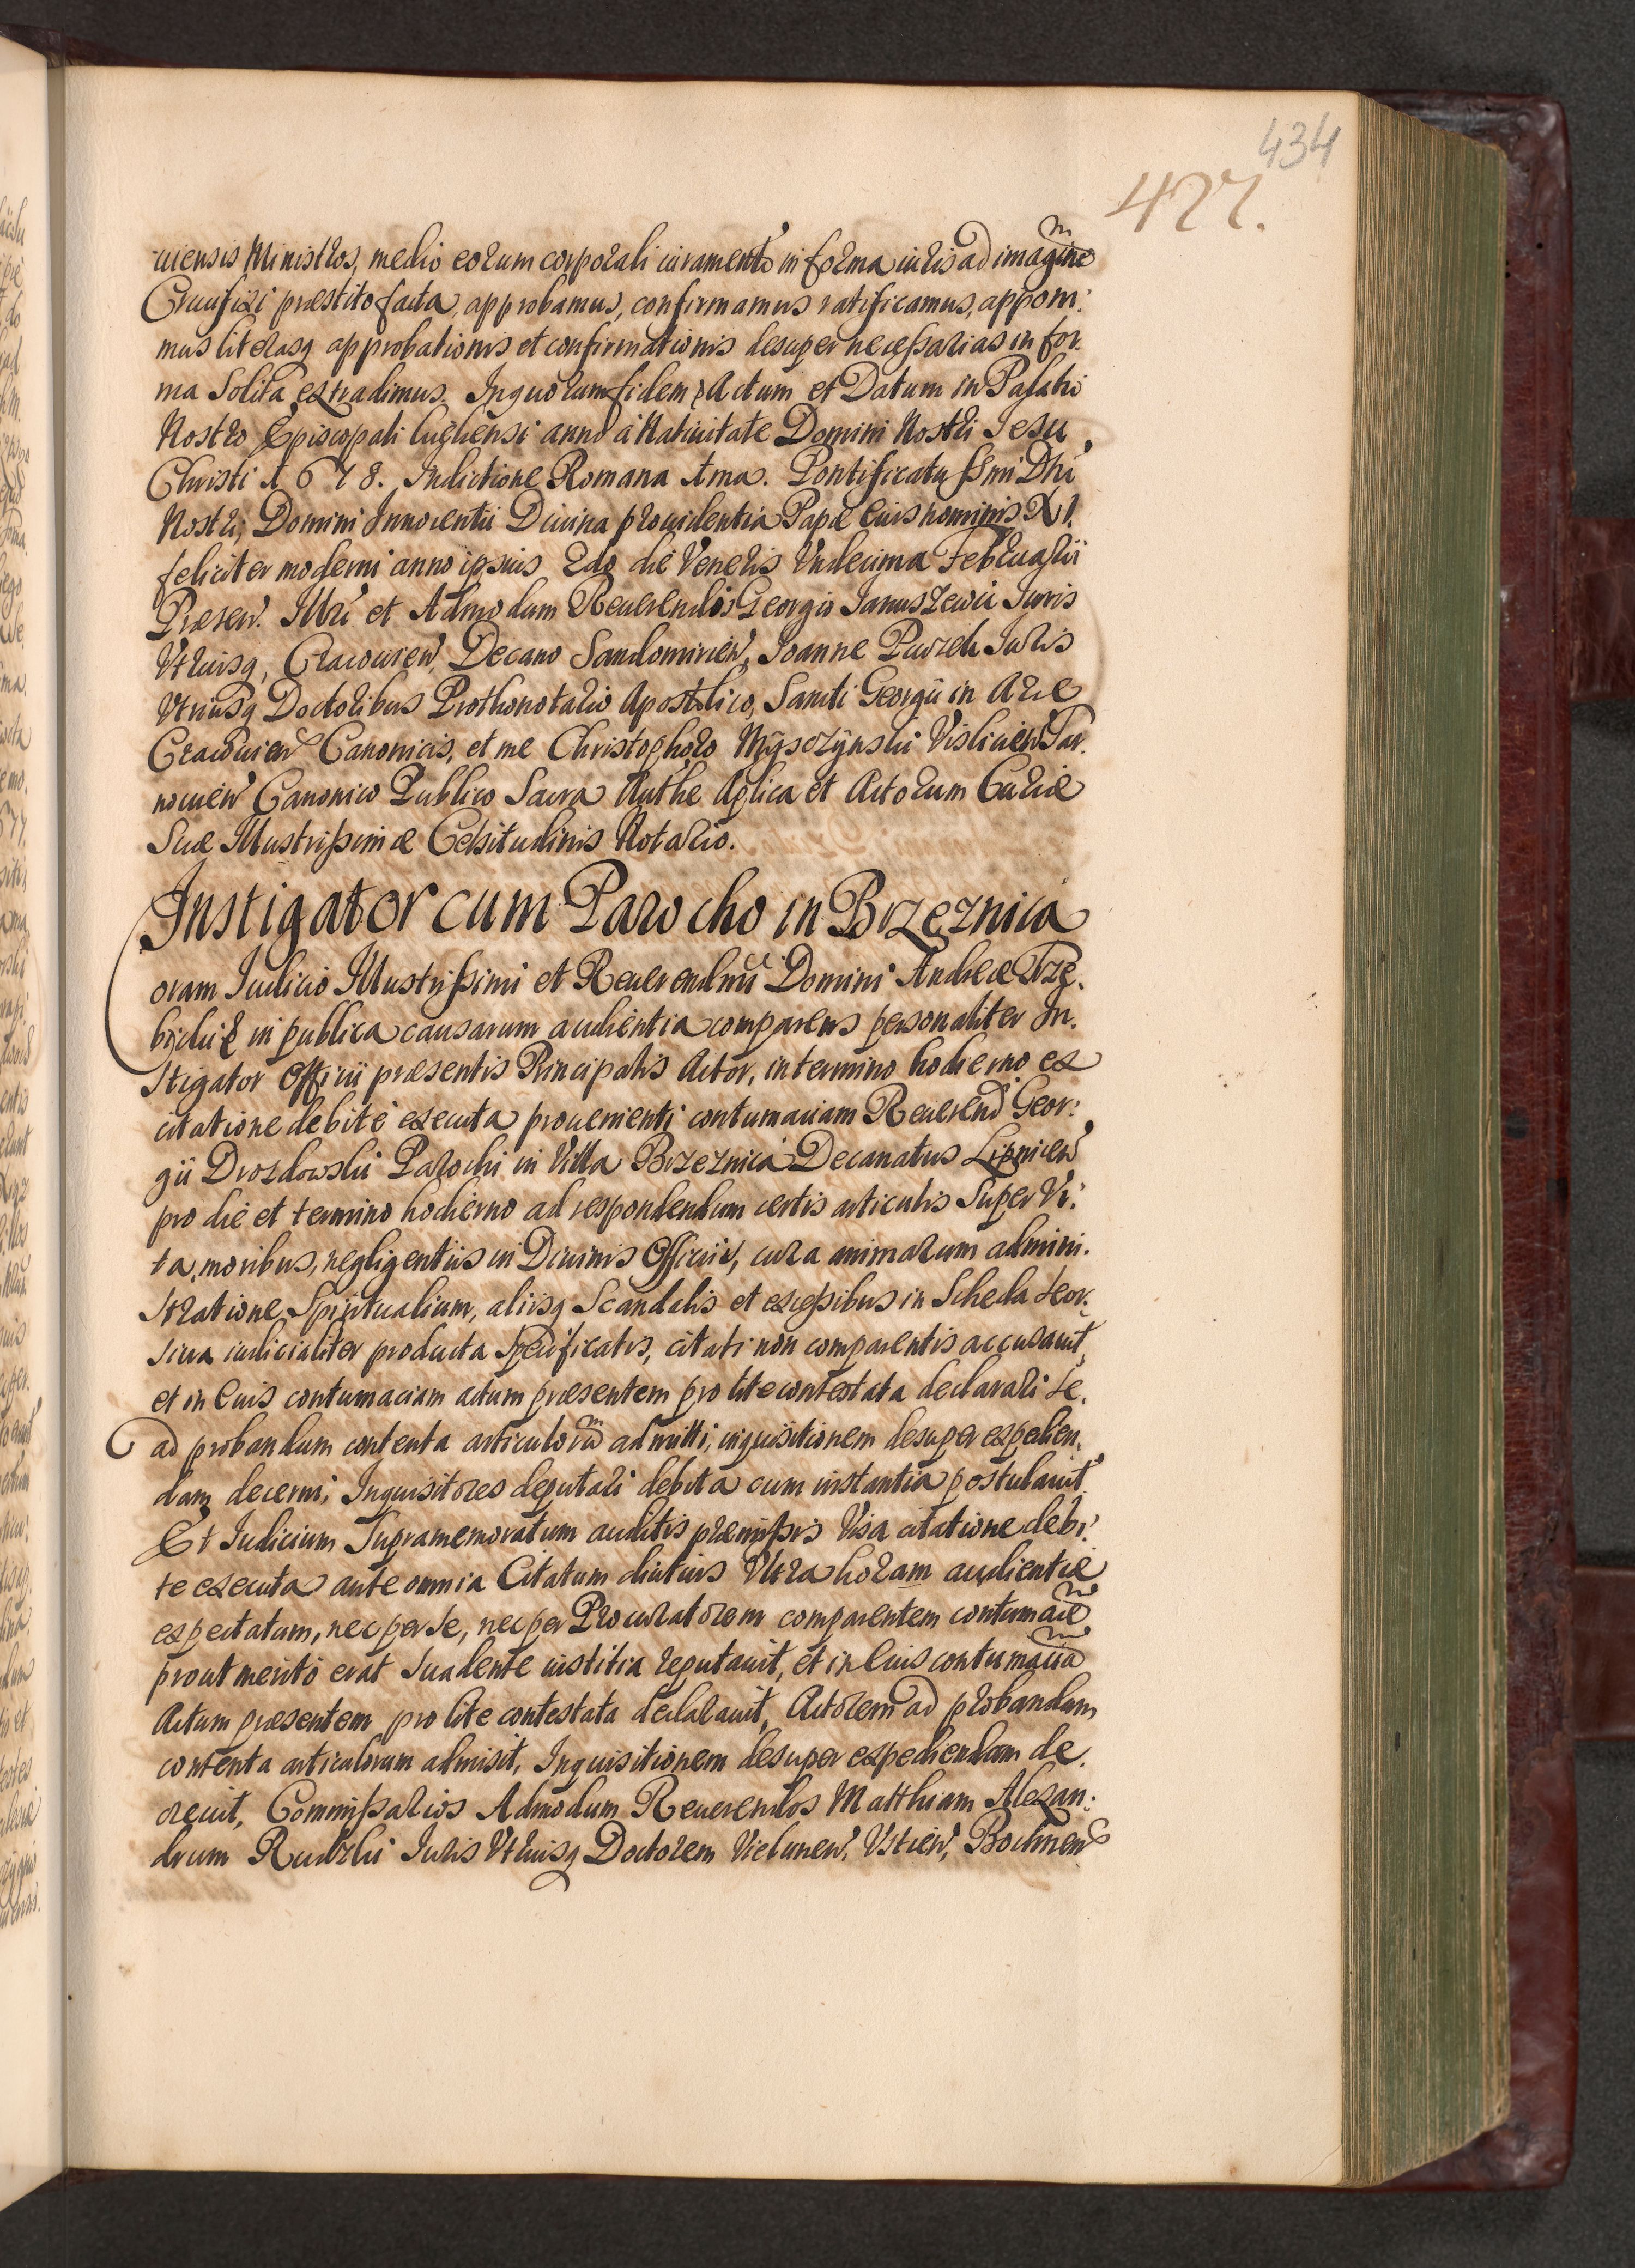 434
427.
uiensis Ministros, medio eorum corporali iuramento in forma iuris ad imagine
Crucifixi præstito facta, approbamus, confirmamus ratificamus, apponi:
mus literasq approbationis et confirmationis desuper necessarias in for:
ma solita extradimus. In quorum fidem Actum et Datum in Palatio
Nostro Episcopali anno à Natiuitate Domini Nostri Iesu
Christi 1678. Indictione Romana 1ma. Pontificatq ssmi Dni
Nostri, Domini Innocentii Diuina prouidentia Papæ eius nominis XI.
feliciter moderni anno ipsius 2do die Veneris Undecima Februarii
Præsen. Illri et Admodum Reuerendis Georgio Ianuszewic Iuris
Vtriusq, Cracouien, Decano Sandomirien, Ioanne Iuris
Vtriusq Doctoribus Prothonotario Apostolico, Sancti Georgii in Arce
Cracouien Canonicis, et me Christophoro Mysczynski Vislicien Tar:
nouien Canonico Publico Sacra Authe Aplica et Actorum Curiæ
Suæ Illustrissimæ Celsitudinis Notario.
Instigator cum Parocho in Brzeznica
Coram Iudicio Illustrissimi et Reuerendmi Domini Andreæ Trze:
bicki in publica causarum audientia comparens personaliter In:
stigator Officii præsentis Principalis Actor, in termino hodierno ex
citatione debitè executa prouenienti contumaciam Reuerend Geor:
gii Drozdowski Parochi in Villa Brzeznica Decanatus Lipnicen
pro die et termino hodierno ad respondendum certis articulis super Vi:
ta, moribus, negligentiis in Diuinis Officiis, cura animarum admini:
stratione Spiritualium, aliisq Scandalis et excessibus in Scheda seor:
siua iudicialiter producta specificatis, citati non comparentis accusauit,
et in eius contumaciam actum præsentem pro lite contestata declarari se,
ad probandum contenta articulorum admitti, inquisitionem desuper expedien:
dam decerni, Inquisitores deputari debita cum instantia postulauit.
Et Iudicium Supramemoratum auditis præmissis Visa citatione debi:
te executa ante omnia Citatum diutius Vltra horam audientiæ
expectatum, nec per se, nec per Procuratorem comparentem contumace
prout merito erat suadente iustitia reputauit, et in eius contumacia
Actum præsentem pro lite contestata declarauit, Actorem ad probandum
contenta articulorum admisit, Inquisitionem desuper expediendam de:
creuit, Commissarios Admodum Reuerendos Matthiam Alexan:
drum Rudzki Iuris Vtriusq Doctorem Vielunen, Vstien, Bochnen